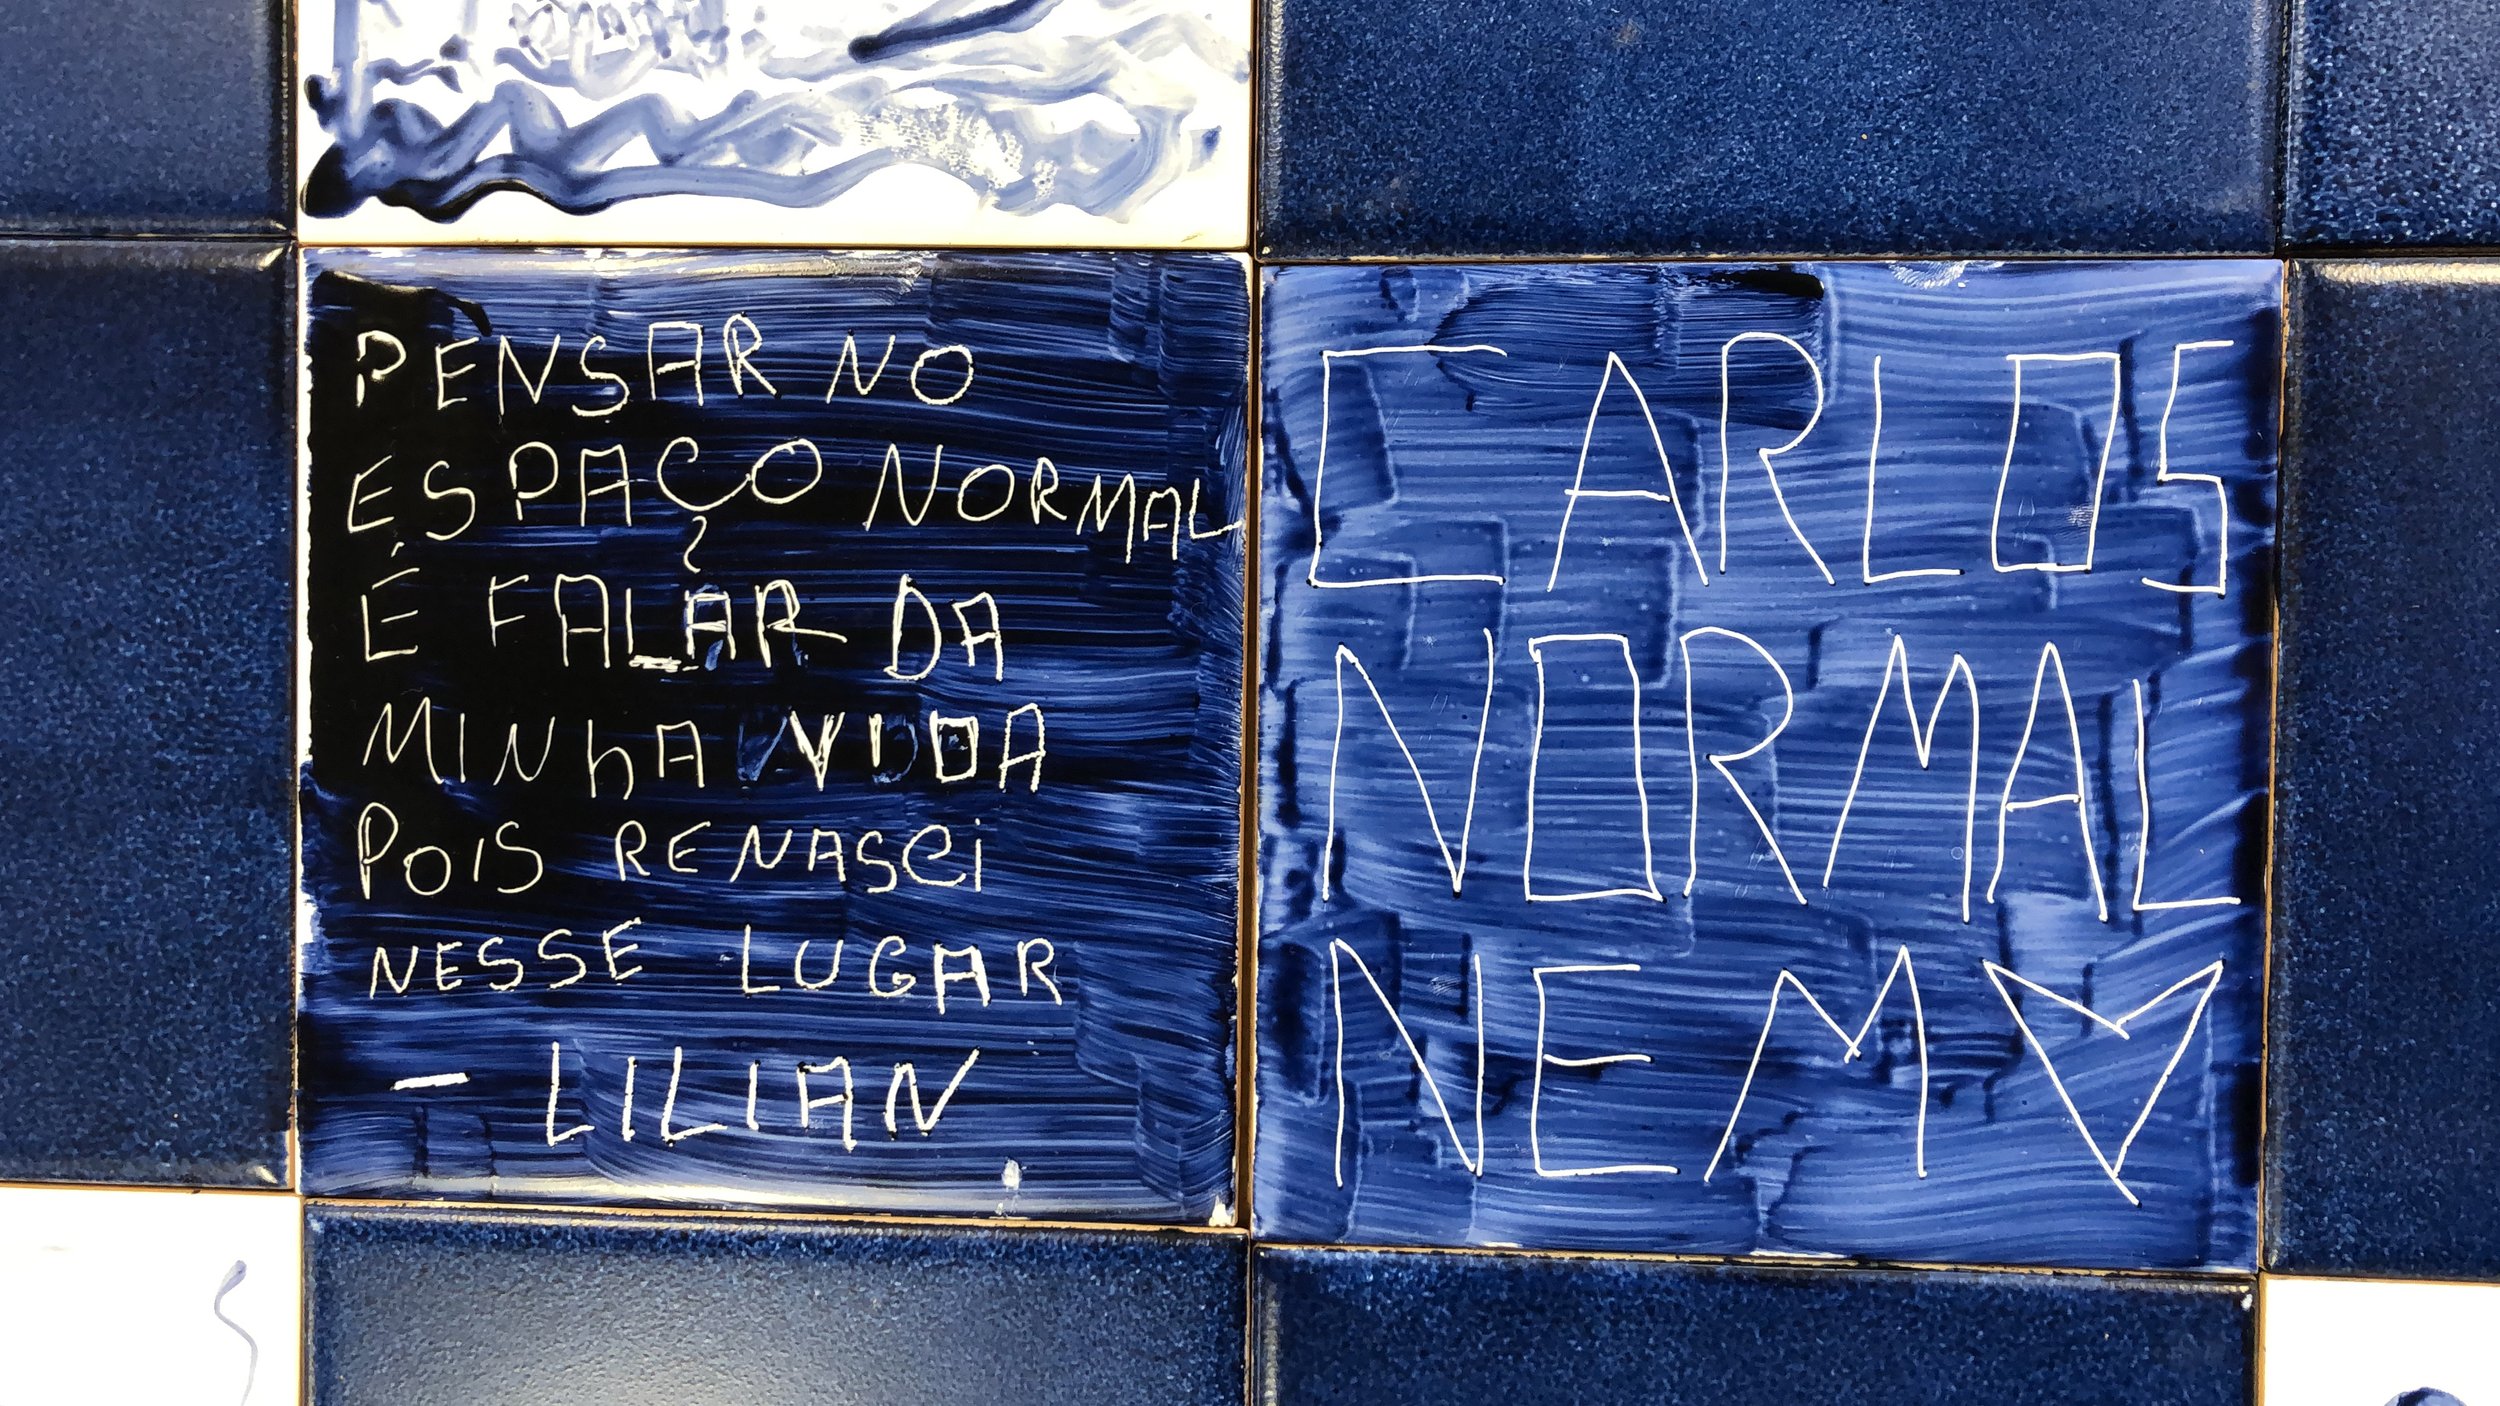 PENSAR NO
ESPAÇO NORMAL
É FALAR DA
MINhA VIDA
POIS RENASCi
NESSE LUGAR
- LILIAN
CARLOS
NORMAL
NEM